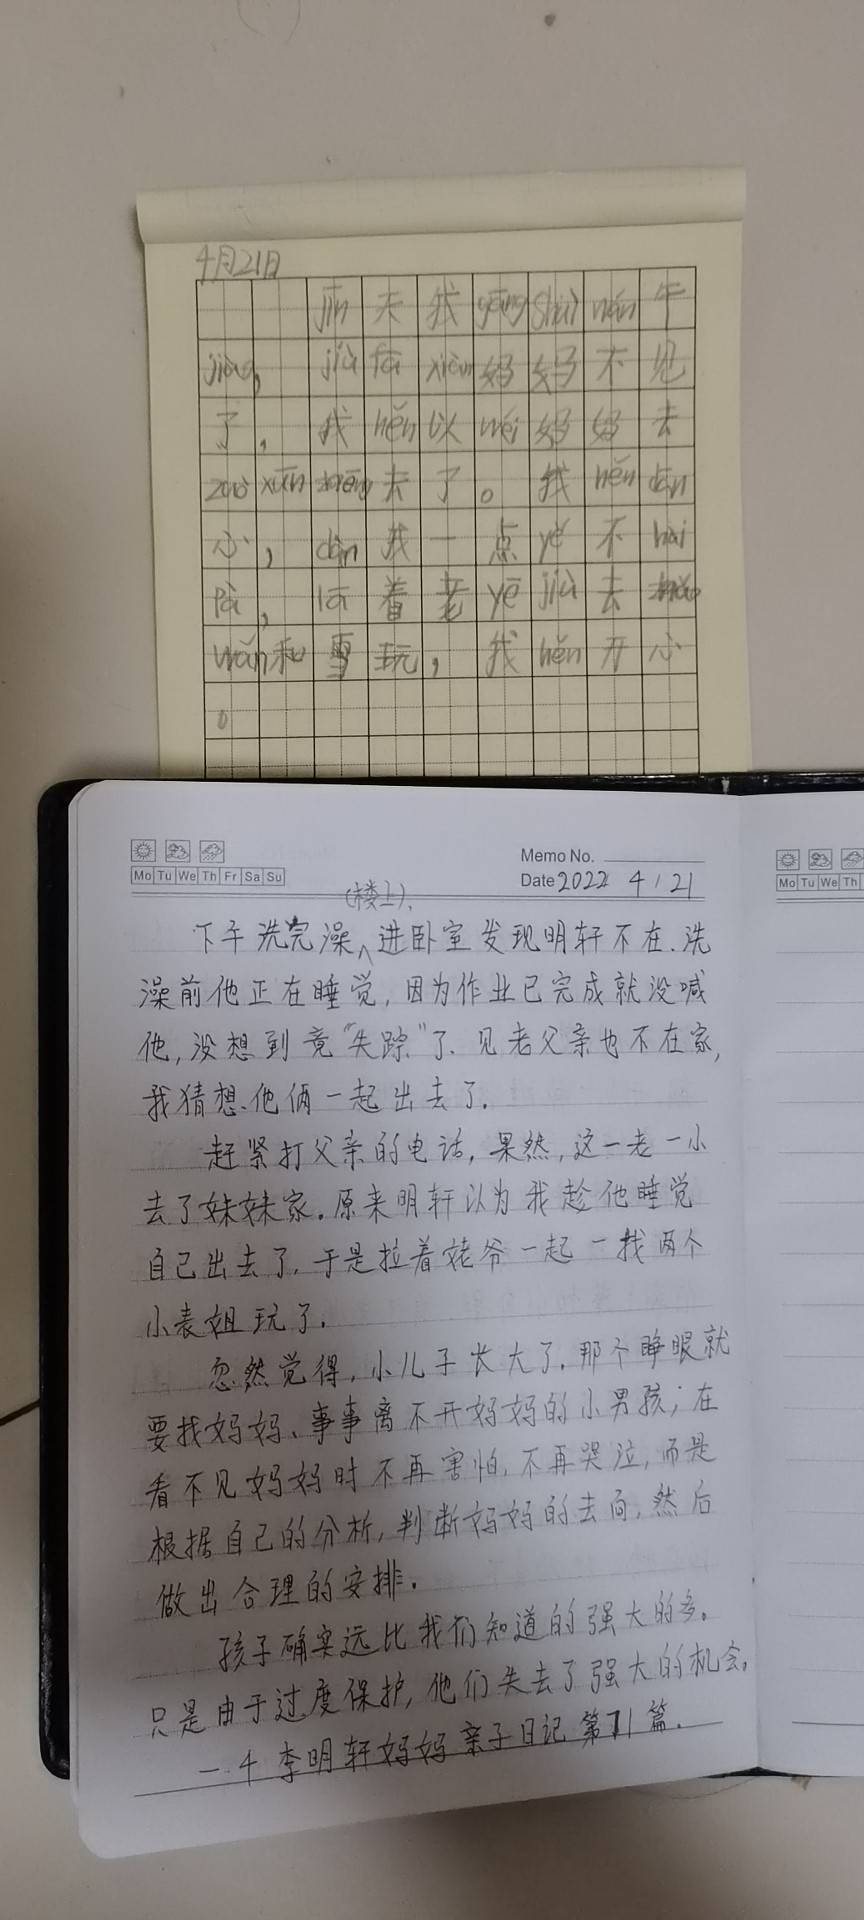 4月21日
jīn 天 我 gāng shuì wán 午
jiào, jiù fā xiàn 妈 妈 不 见
了, 我 hěn 以 wéi 妈 妈 去
xùn 去 了。 我 hěn dān
心, dàn 我 一 点 yě 不 hài
pà, lā 着 老 yē jiù 去
wán 和 雪 玩, 我 hěn 开 心
。
Mo Tu We Th Fr Sa Su
Memo No.
Date 2022 4 / 21
Mo Tu We Th
(楼上).
下午洗完澡∧进卧室发现明轩不在.洗
澡前他正在睡觉,因为作业已完成就没喊
他,没想到竟“失踪”了.见老父亲也不在家,
我猜想.他俩一起出去了.
赶紧打父亲的电话,果然,这一老一小
去了妹妹家.原来明轩认为我趁他睡觉
自己出去了.于是拉着姥爷一起一找两个
小表姐玩了.
忽然觉得,小儿子长大了.那个睁眼就
要找妈妈、事事离不开妈妈的小男孩;在
看不见妈妈时不再害怕,不再哭泣,而是
根据自己的分析,判断妈妈的去向,然后
做出合理的安排.
孩子确实远比我们知道的强大的多。
只是由于过度保护,他们失去了强大的机会。
一.4 李明轩妈妈亲子日记第71篇.